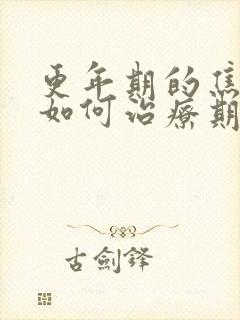 更年期的焦
如何治療期
古劍鋒